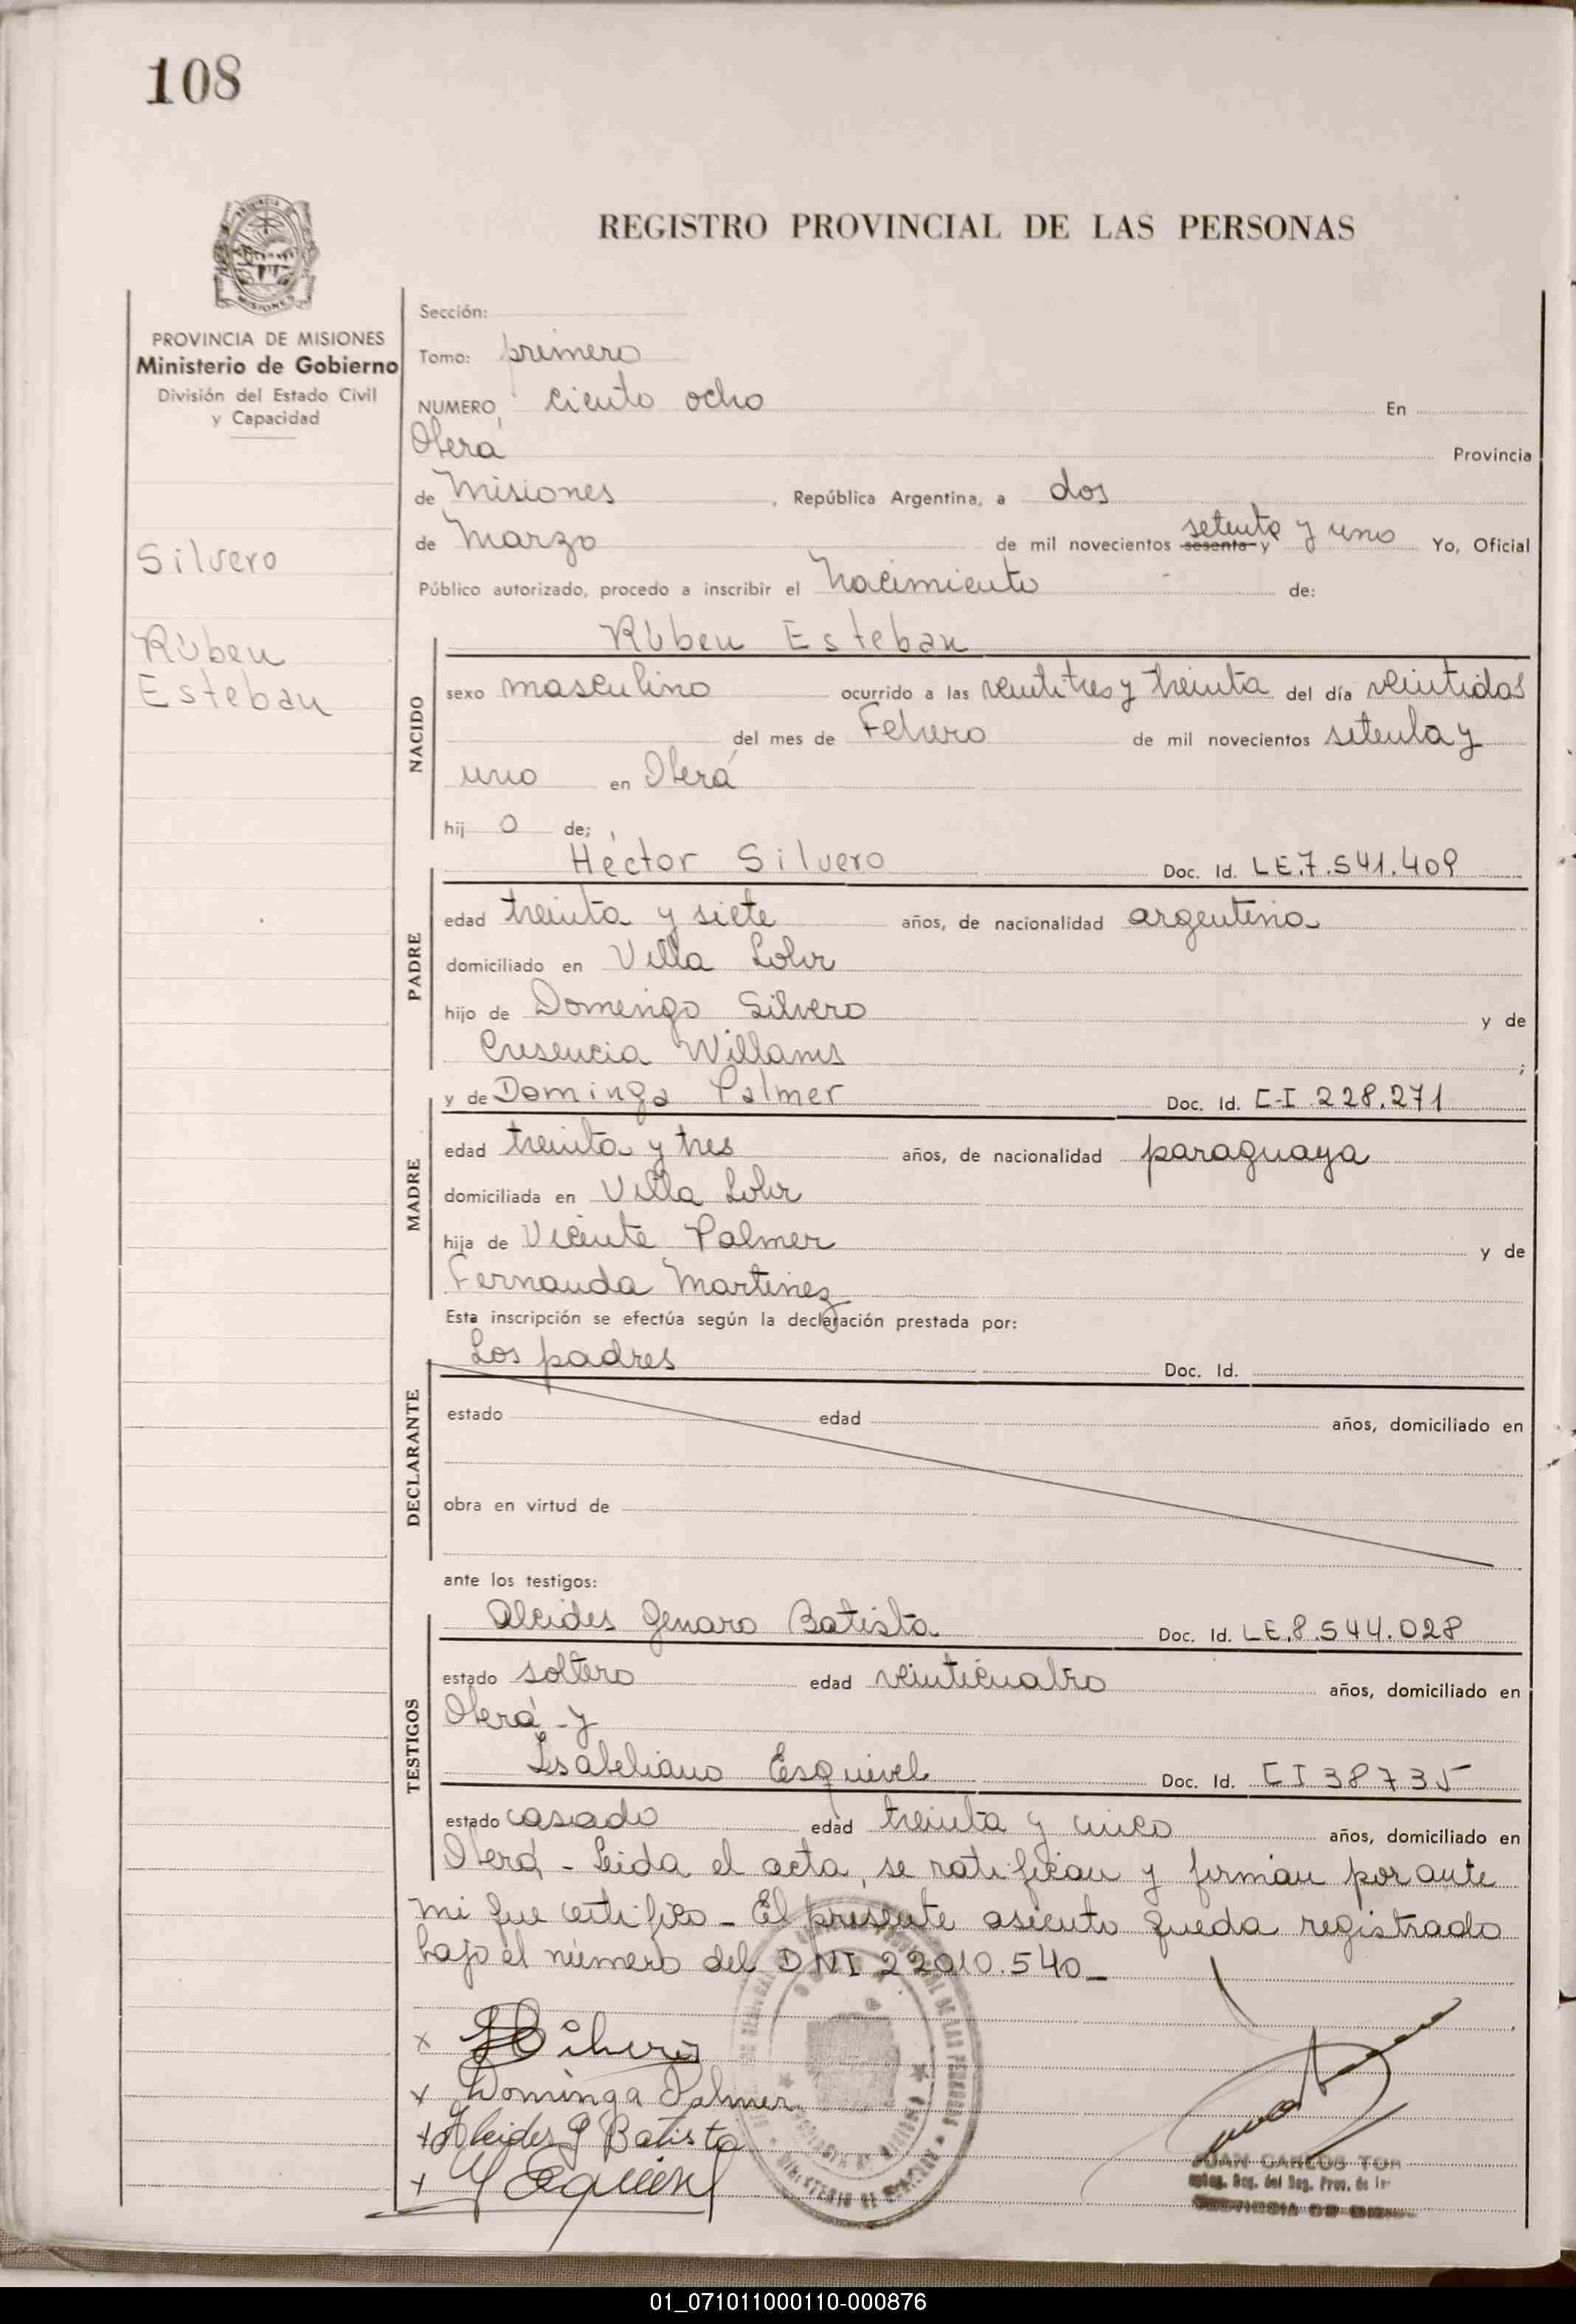 108
REGISTRO PROVINCIAL DE LAS PERSONAS
MISIONES
PROVINCIA DE MISIONES
Ministerio de Gobierno
División del Estado Civil
y Capacidad
Silvero
Rúben
Esteban
Sección:
Tomo: primero
NUMERO, ciento ocho En
Oberá Provincia
de Misiones, República Argentina, a dos
de Marzo de mil novecientos sesenta y setenta y uno Yo, Oficial
Público autorizado, procedo a inscribir el nacimiento de:
Rúben Esteban
NACIDO
sexo masculino ocurrido a las veintitres y treinta del día veintidos
del mes de Febrero de mil novecientos setenta y
uno en Oberá
hij o de;
Héctor Silvero Doc. Id. LE.7.541.409
PADRE
edad treinta y siete años, de nacionalidad argentina
domiciliado en Villa Lohr
hijo de Domingo Silvero y de
Cresencia Willams ;
y de Dominga Palmer Doc. Id. C-I 228.271
MADRE
edad treinta y tres años, de nacionalidad paraguaya
domiciliada en Villa Lohr
hija de Vicente Palmer y de
Fernanda Martinez
Esta inscripción se efectúa según la declaración prestada por:
Los padres Doc. Id.
DECLARANTE
estado edad años, domiciliado en
obra en virtud de
ante los testigos:
Alcides Genaro Batista Doc. Id. LE.8.544.028
TESTIGOS
estado soltero edad veinticuatro años, domiciliado en
Oberá - y
Isabeliano Esquivel Doc. Id. CI 38735
estado casado edad treinta y cinco años, domiciliado en
Oberá - Leida el acta, se ratifican y firman por ante
mi que certifico - El presente asiento queda registrado
bajo el número del DNI 22010.540 -
x HSilvero
x Dominga Palmer
x Alcides G Batista
x Y Esquivel
JUAN CARLOS
del Reg. Prov. de
01_071011000110-000876